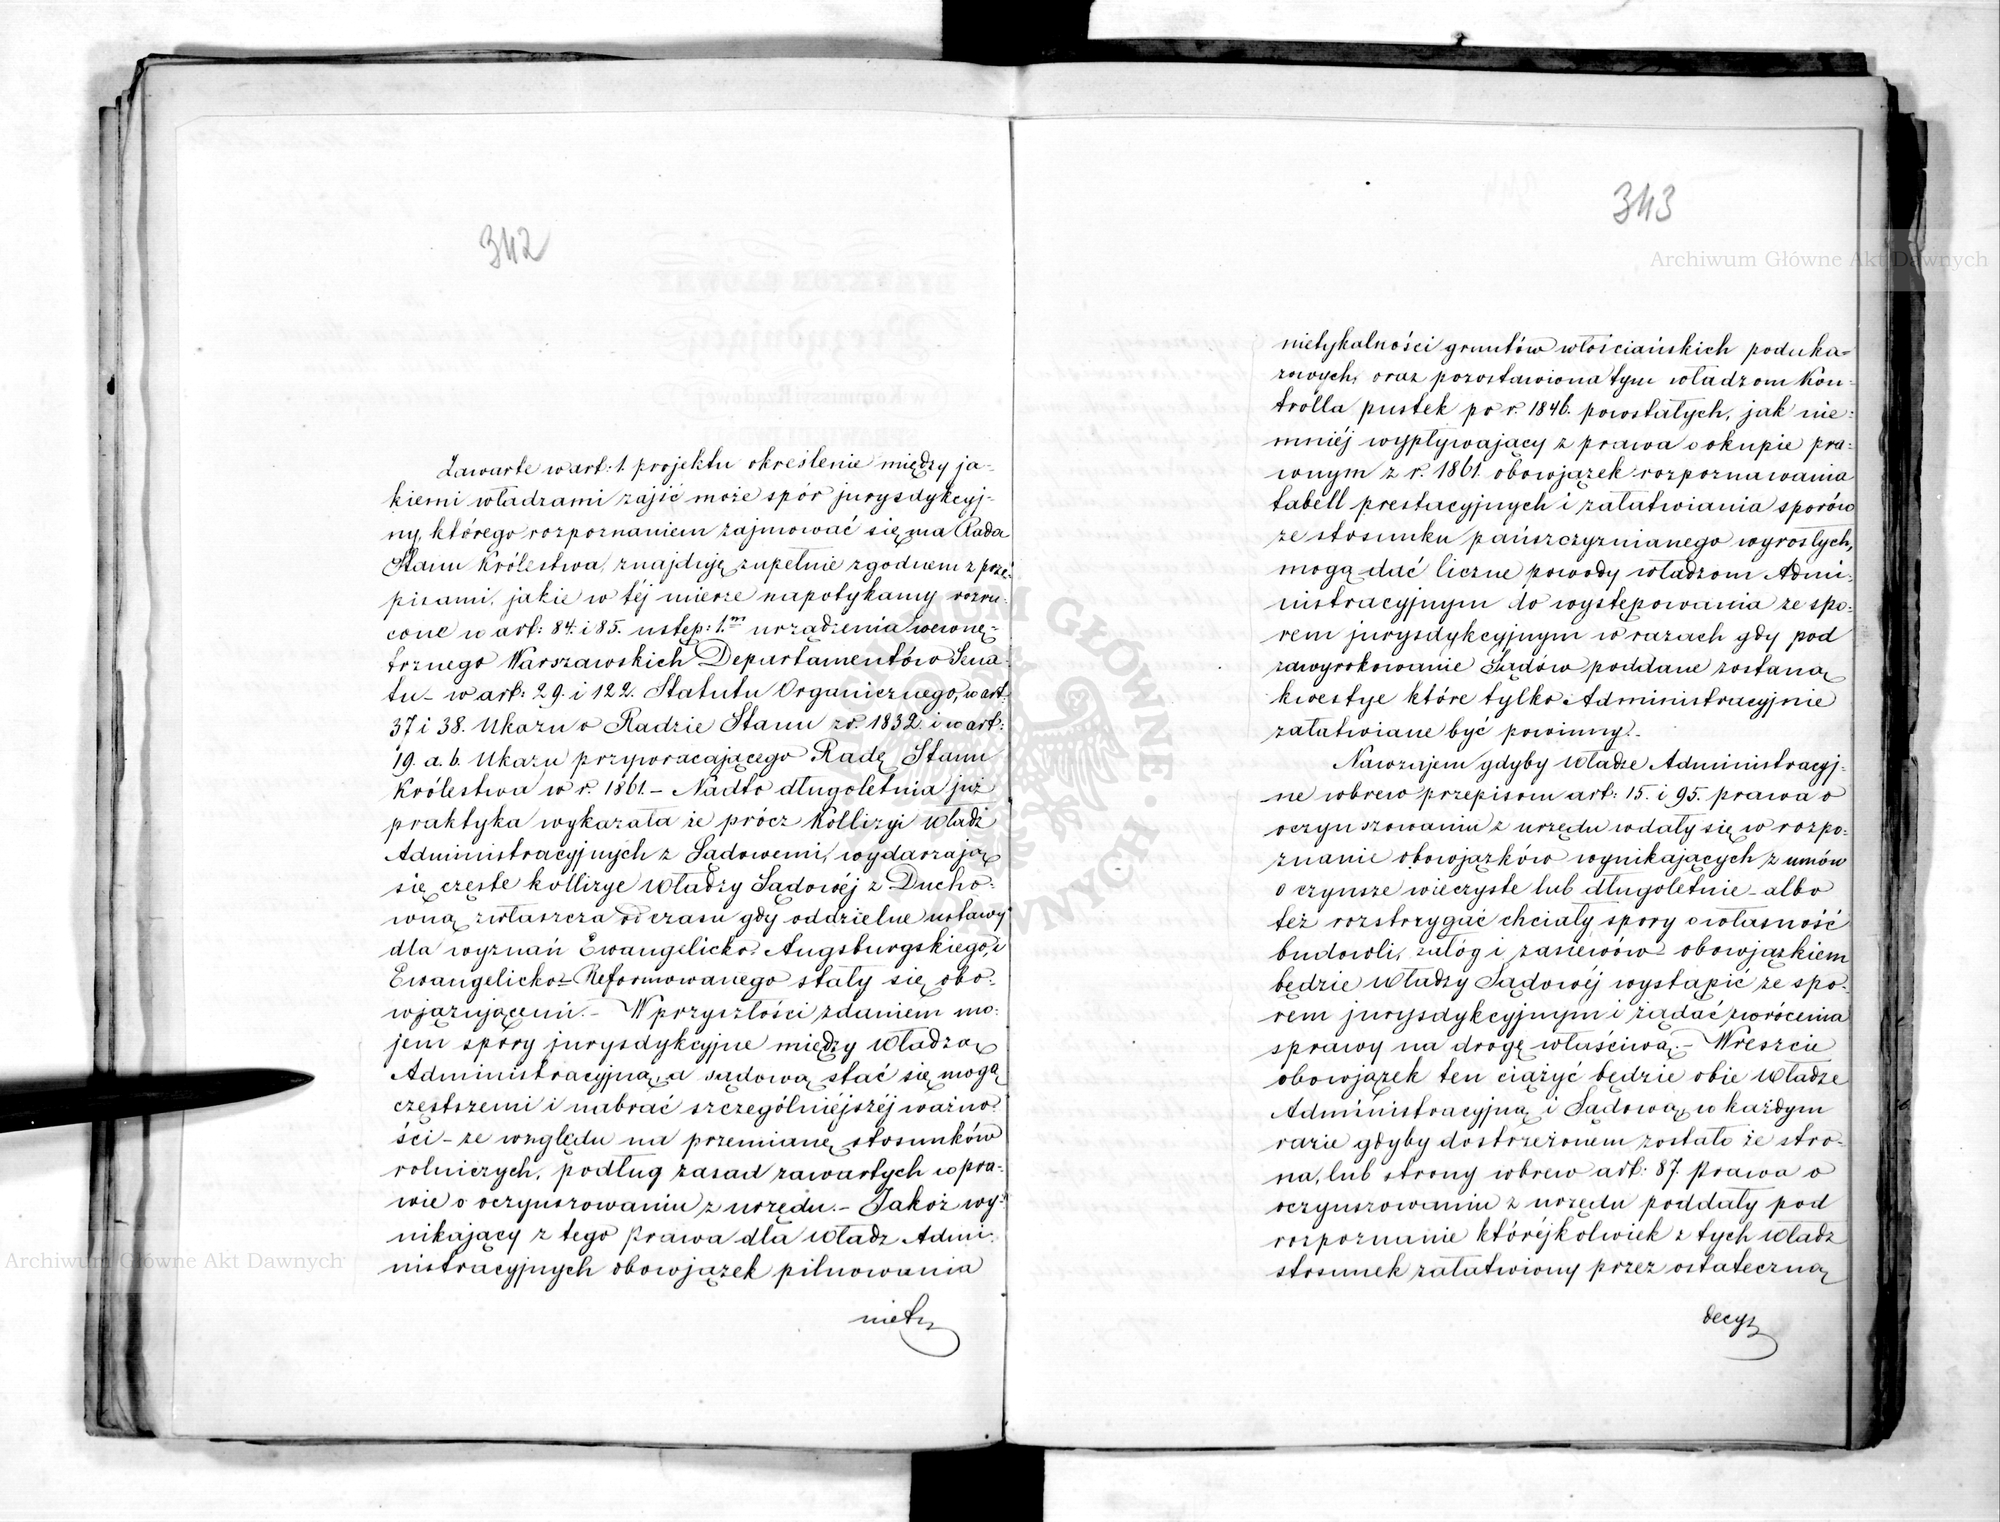 342
Zawarte w art: 1. projektu określenie między ja-
kiemi władzami zajść może spór jurysdykcyj-
ny, którego rozpoznaniem zajmować się ma Rada
Stanu Królestwa, znajduję zupełnie zgodnem z prze-
pisami, jakie w téj mierze napotykamy rozrzu-
cone w art: 84. i 85. ustęp: 1.m urządzenia wewnę-
trznego Warszawskich Departamentów Sena-
tu - w art: 29. i 122. Statutu Organicznego, w art:
37 i 38. Ukazu o Radzie Stanu z r. 1832. i w art:
19. a. b. Ukazu przywracającego Radę Stanu
Królestwa w r. 1861. - Nadto długoletnia już
praktyka wykazała że prócz Kollizyi Władz
Administracyjnych z Sądowemi, wydarzają
się częste kollizye Władzy Sądowéj z Ducho-
wną zwłaszcza od czasu gdy oddzielne ustawy
dla wyznań Ewangelicko-Augsburgskiego, i
Ewangelicko-Reformowanego stały się obo-
wjązującemi. - W przyszłości zdaniem mo-
jem spory jurysdykcyjne między Władzą
Administracyjną, a sądową stać się mogą
częstszemi i nabrać szczególniéjszéj ważno-
ści - ze względu na przemianę stosunków
rolniczych, podług zasad zawartych w pra-
wie o oczynszowaniu z urzędu. - Jakoż wy-
nikający z tego Prawa dla Władz Admi-
nistracyjnych obowjązek pilnowania
niety
343
nietykalności gruntów włościańskich poduka-
zowych, oraz pozostawiona tym władzom Kon-
trolla pustek po r. 1846. powstałych, jak nie-
mniéj wypływający z prawa o okupie pra-
wnym z r. 1861. obowjązek rozpoznawania
tabell prestacyjnych i załatwiania sporów
ze stosunku pańszczyznianego wyrosłych,
mogą dać liczne powody władzom Admi-
nistracyjnym do występowania ze spo-
rem jurysdykcyjnym w razach gdy pod
zawyrokowanie Sądów poddane zostaną
kwestye które tylko Administracyjnie
załatwiane być powinny. -
Nawzajem gdyby Władze Administracyj-
ne wbrew przepisom art: 15. i 95. prawa o
oczynszowaniu z urzędu wdały się w rozpo-
znanie obowjązków wynikających z umów
o czynsze wieczyste lub długoletnie - albo
też rozstrzygać chciały spory o własność
budowli, załóg i zasiewów - obowjązkiem
będzie Władzy Sądowéj wystąpić ze spo-
rem jurysdykcyjnym i żądać zwrócenia
sprawy na drogę właściwą. - Wreszcie
obowjązek ten ciążyć będzie obie Władze
Administracyjną i Sądową w każdym
razie gdyby dostrzeżonem zostało że stro-
na, lub strony wbrew art: 87. Prawa o
oczynszowaniu z urzędu poddały pod
rozpoznanie któréjkolwiek z tych Władz
stosunek załatwiony przez ostateczną
decyz
Archiwum Główne Akt Dawnych
Archiwum Główne Akt Dawnych